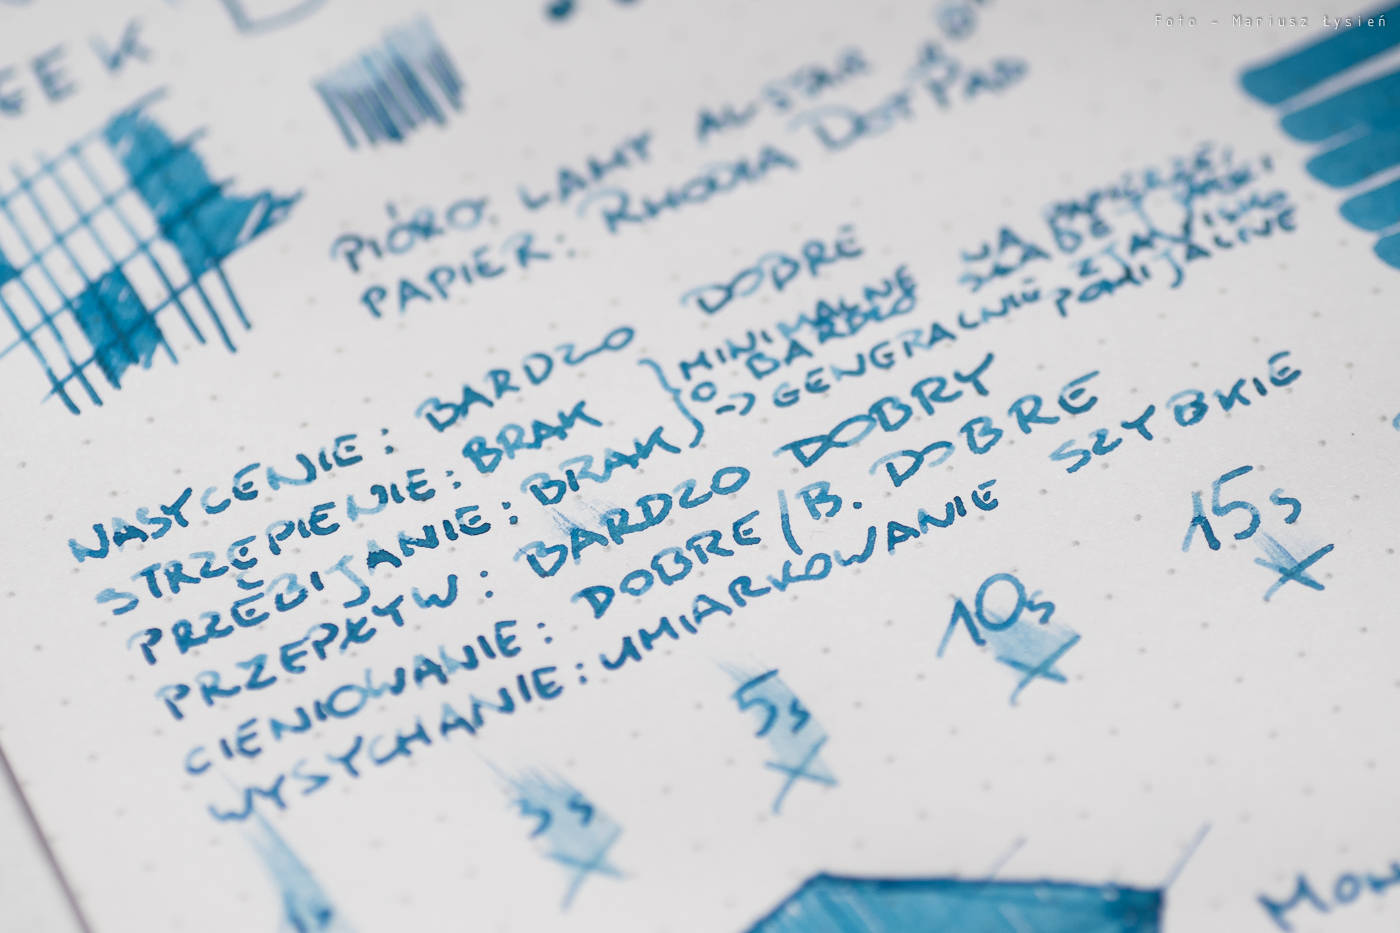 Foto - Mariusz Łysień
FEK
PIÓRO: LAMY AL-STAR
PAPIER: RHODIA DOTPAD
NASYCENIE: BARDZO DOBRE
STRZĘPIENIE: BRAK
PRZEBIJANIE: BRAK
MINIMALNE NA PAPIERZE,
O BARDZO
-> GENERALNIE POMIJALNE
PRZEPŁYW: BARDZO DOBRY
CIENIOWANIE: DOBRE/B. DOBRE
WYSYCHANIE: UMIARKOWANIE SZYBKIE
1s
3s
5s
10s
15s